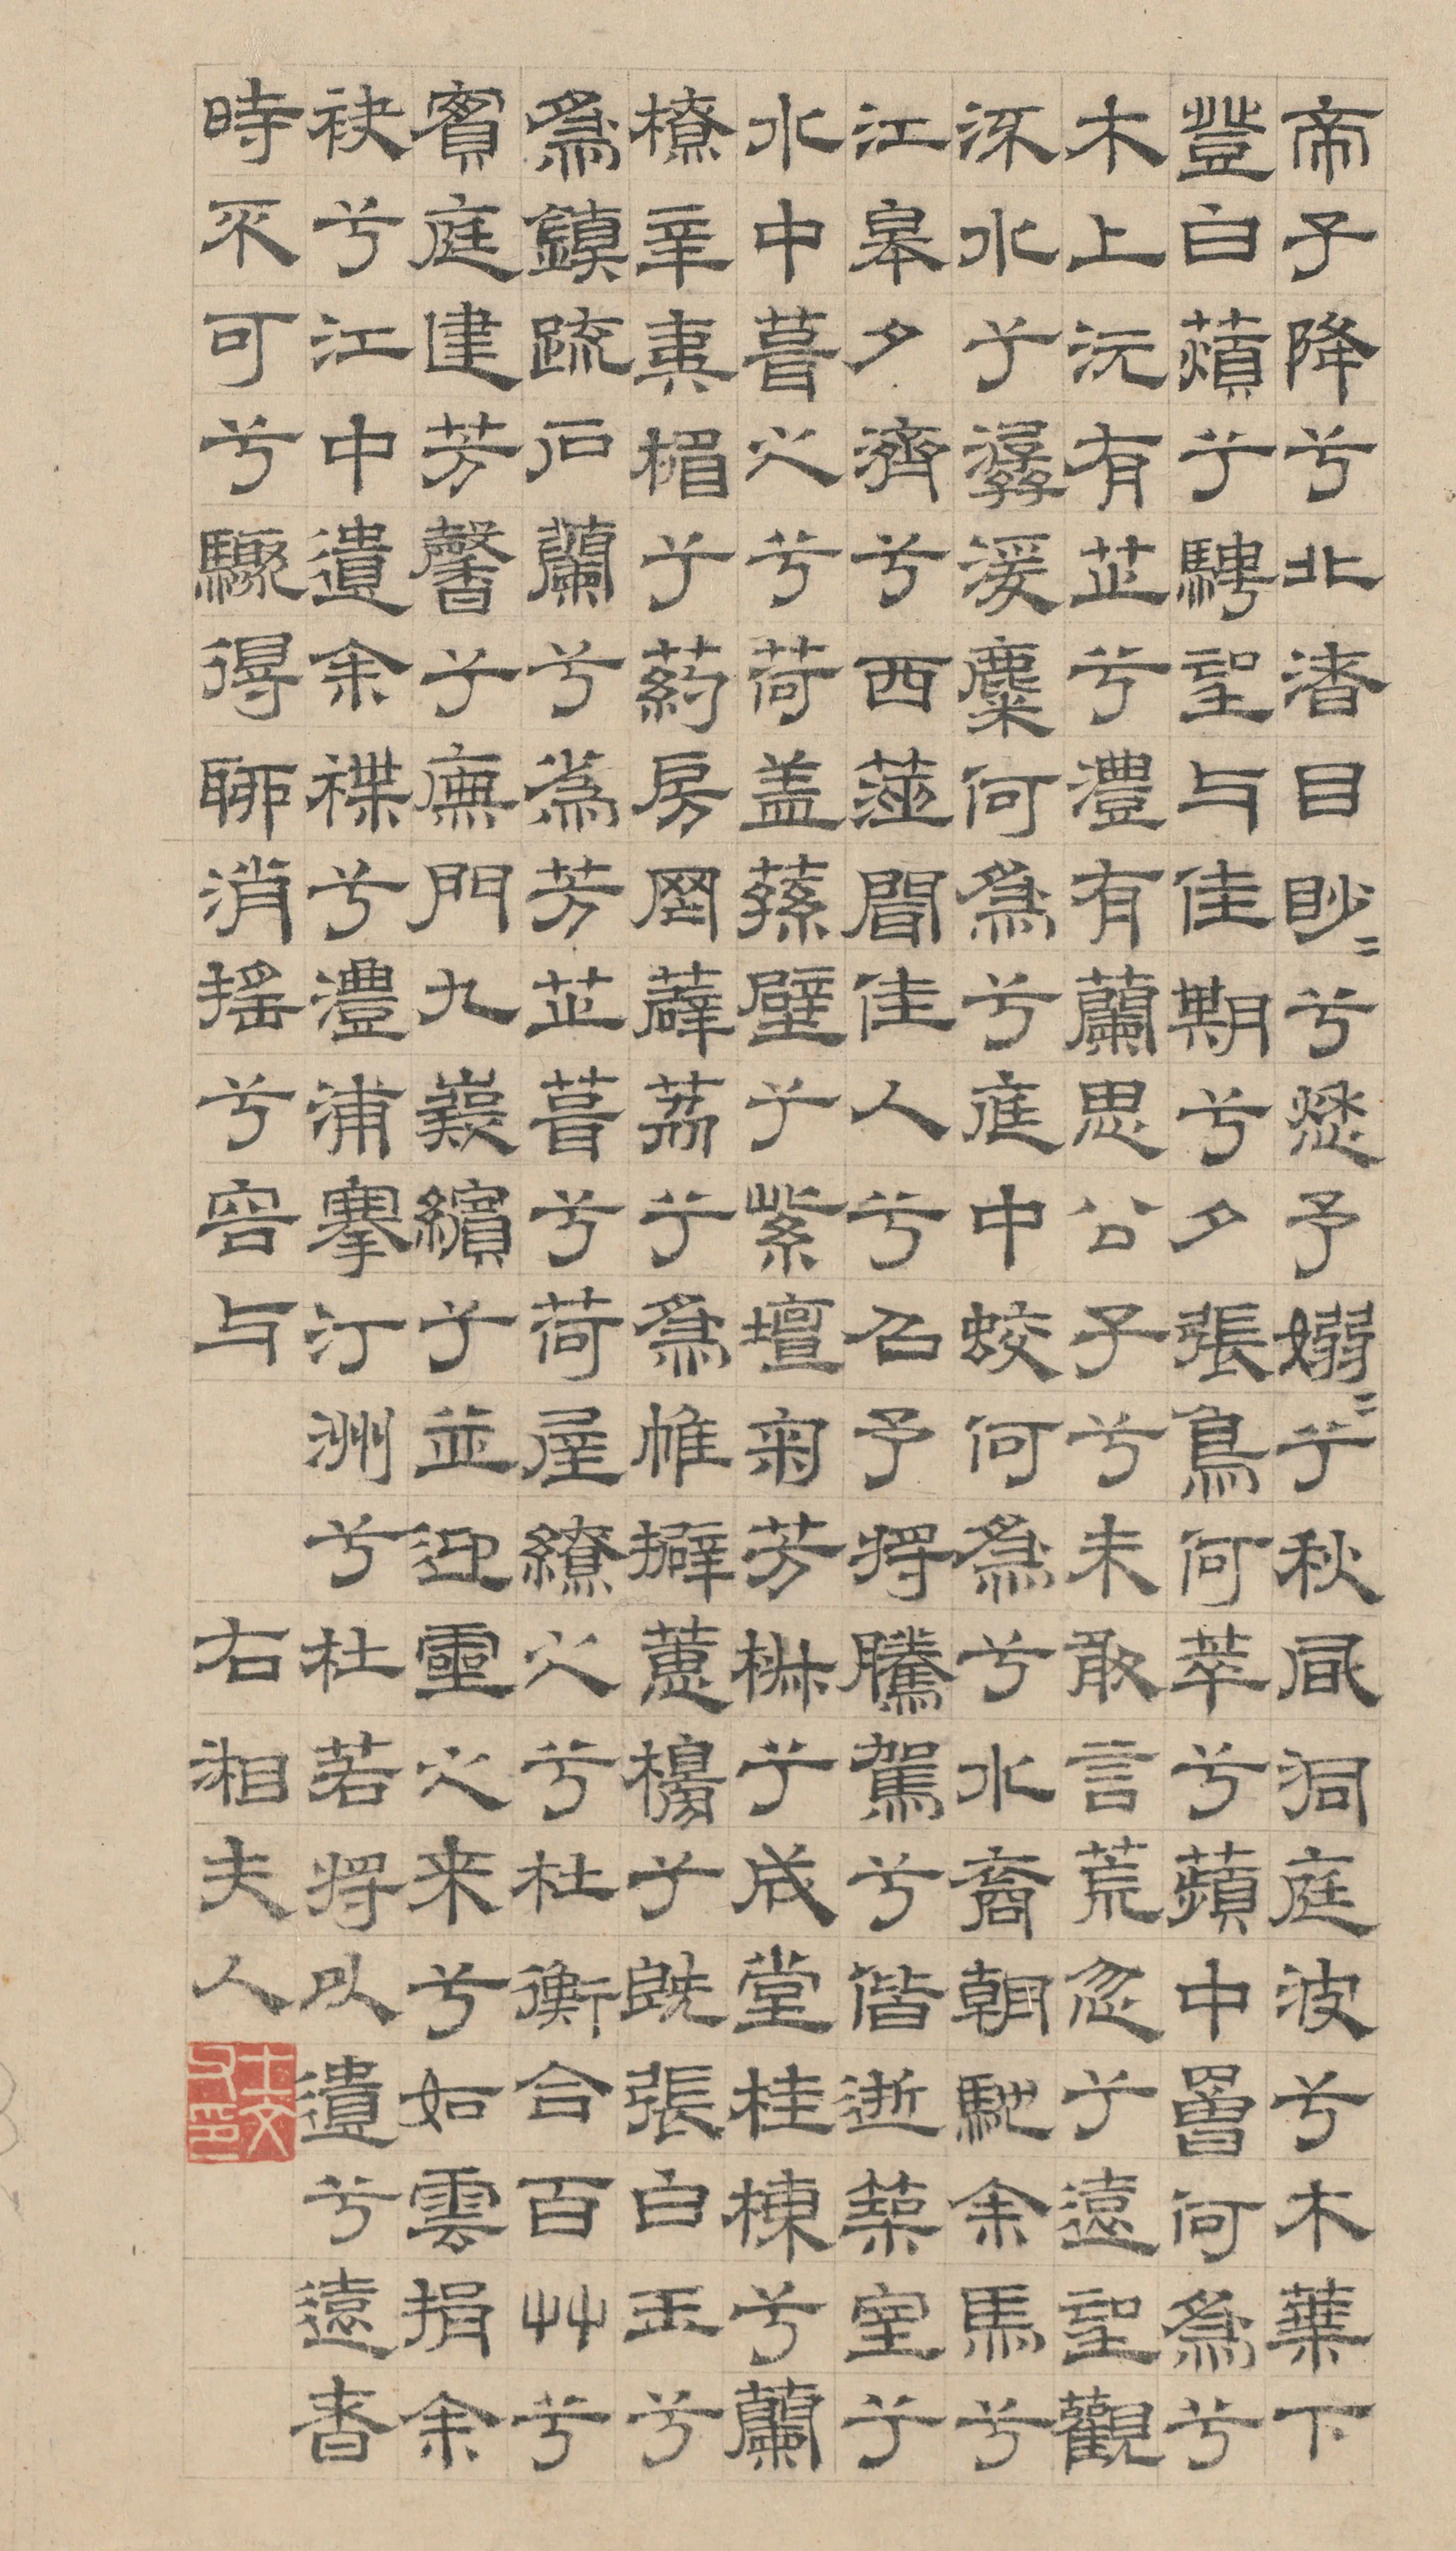 帝子降兮北渚目眇〻兮愁予嫋〻兮秋風洞庭波兮木葉下
登白薠兮騁望与佳期兮夕張鳥何萃兮蘋中罾何為兮
木上沅有芷兮澧有蘭思公子兮未敢言荒忽兮遠望觀
流水兮潺湲麋何為兮庭中蛟何為兮水裔朝馳余馬兮
江皋夕濟兮西澨聞佳人兮召予將騰駕兮偕逝築室兮
水中葺之兮荷盖蓀壁兮紫壇匊芳椒兮成堂桂棟兮蘭
橑辛夷楣兮葯房罔薜荔兮為帷擗蕙櫋兮既張白玉兮
為鎮疏石蘭兮為芳芷葺兮荷屋繚之兮杜衡合百艸兮
實庭建芳馨兮廡門九嶷繽兮並迎靈之来兮如雲捐余
袂兮江中遺余褋兮澧浦搴汀洲兮杜若將以遺兮遠者
時不可兮驟得聊消搖兮容与
右湘夫人